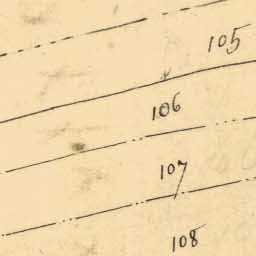 105
106
107
108